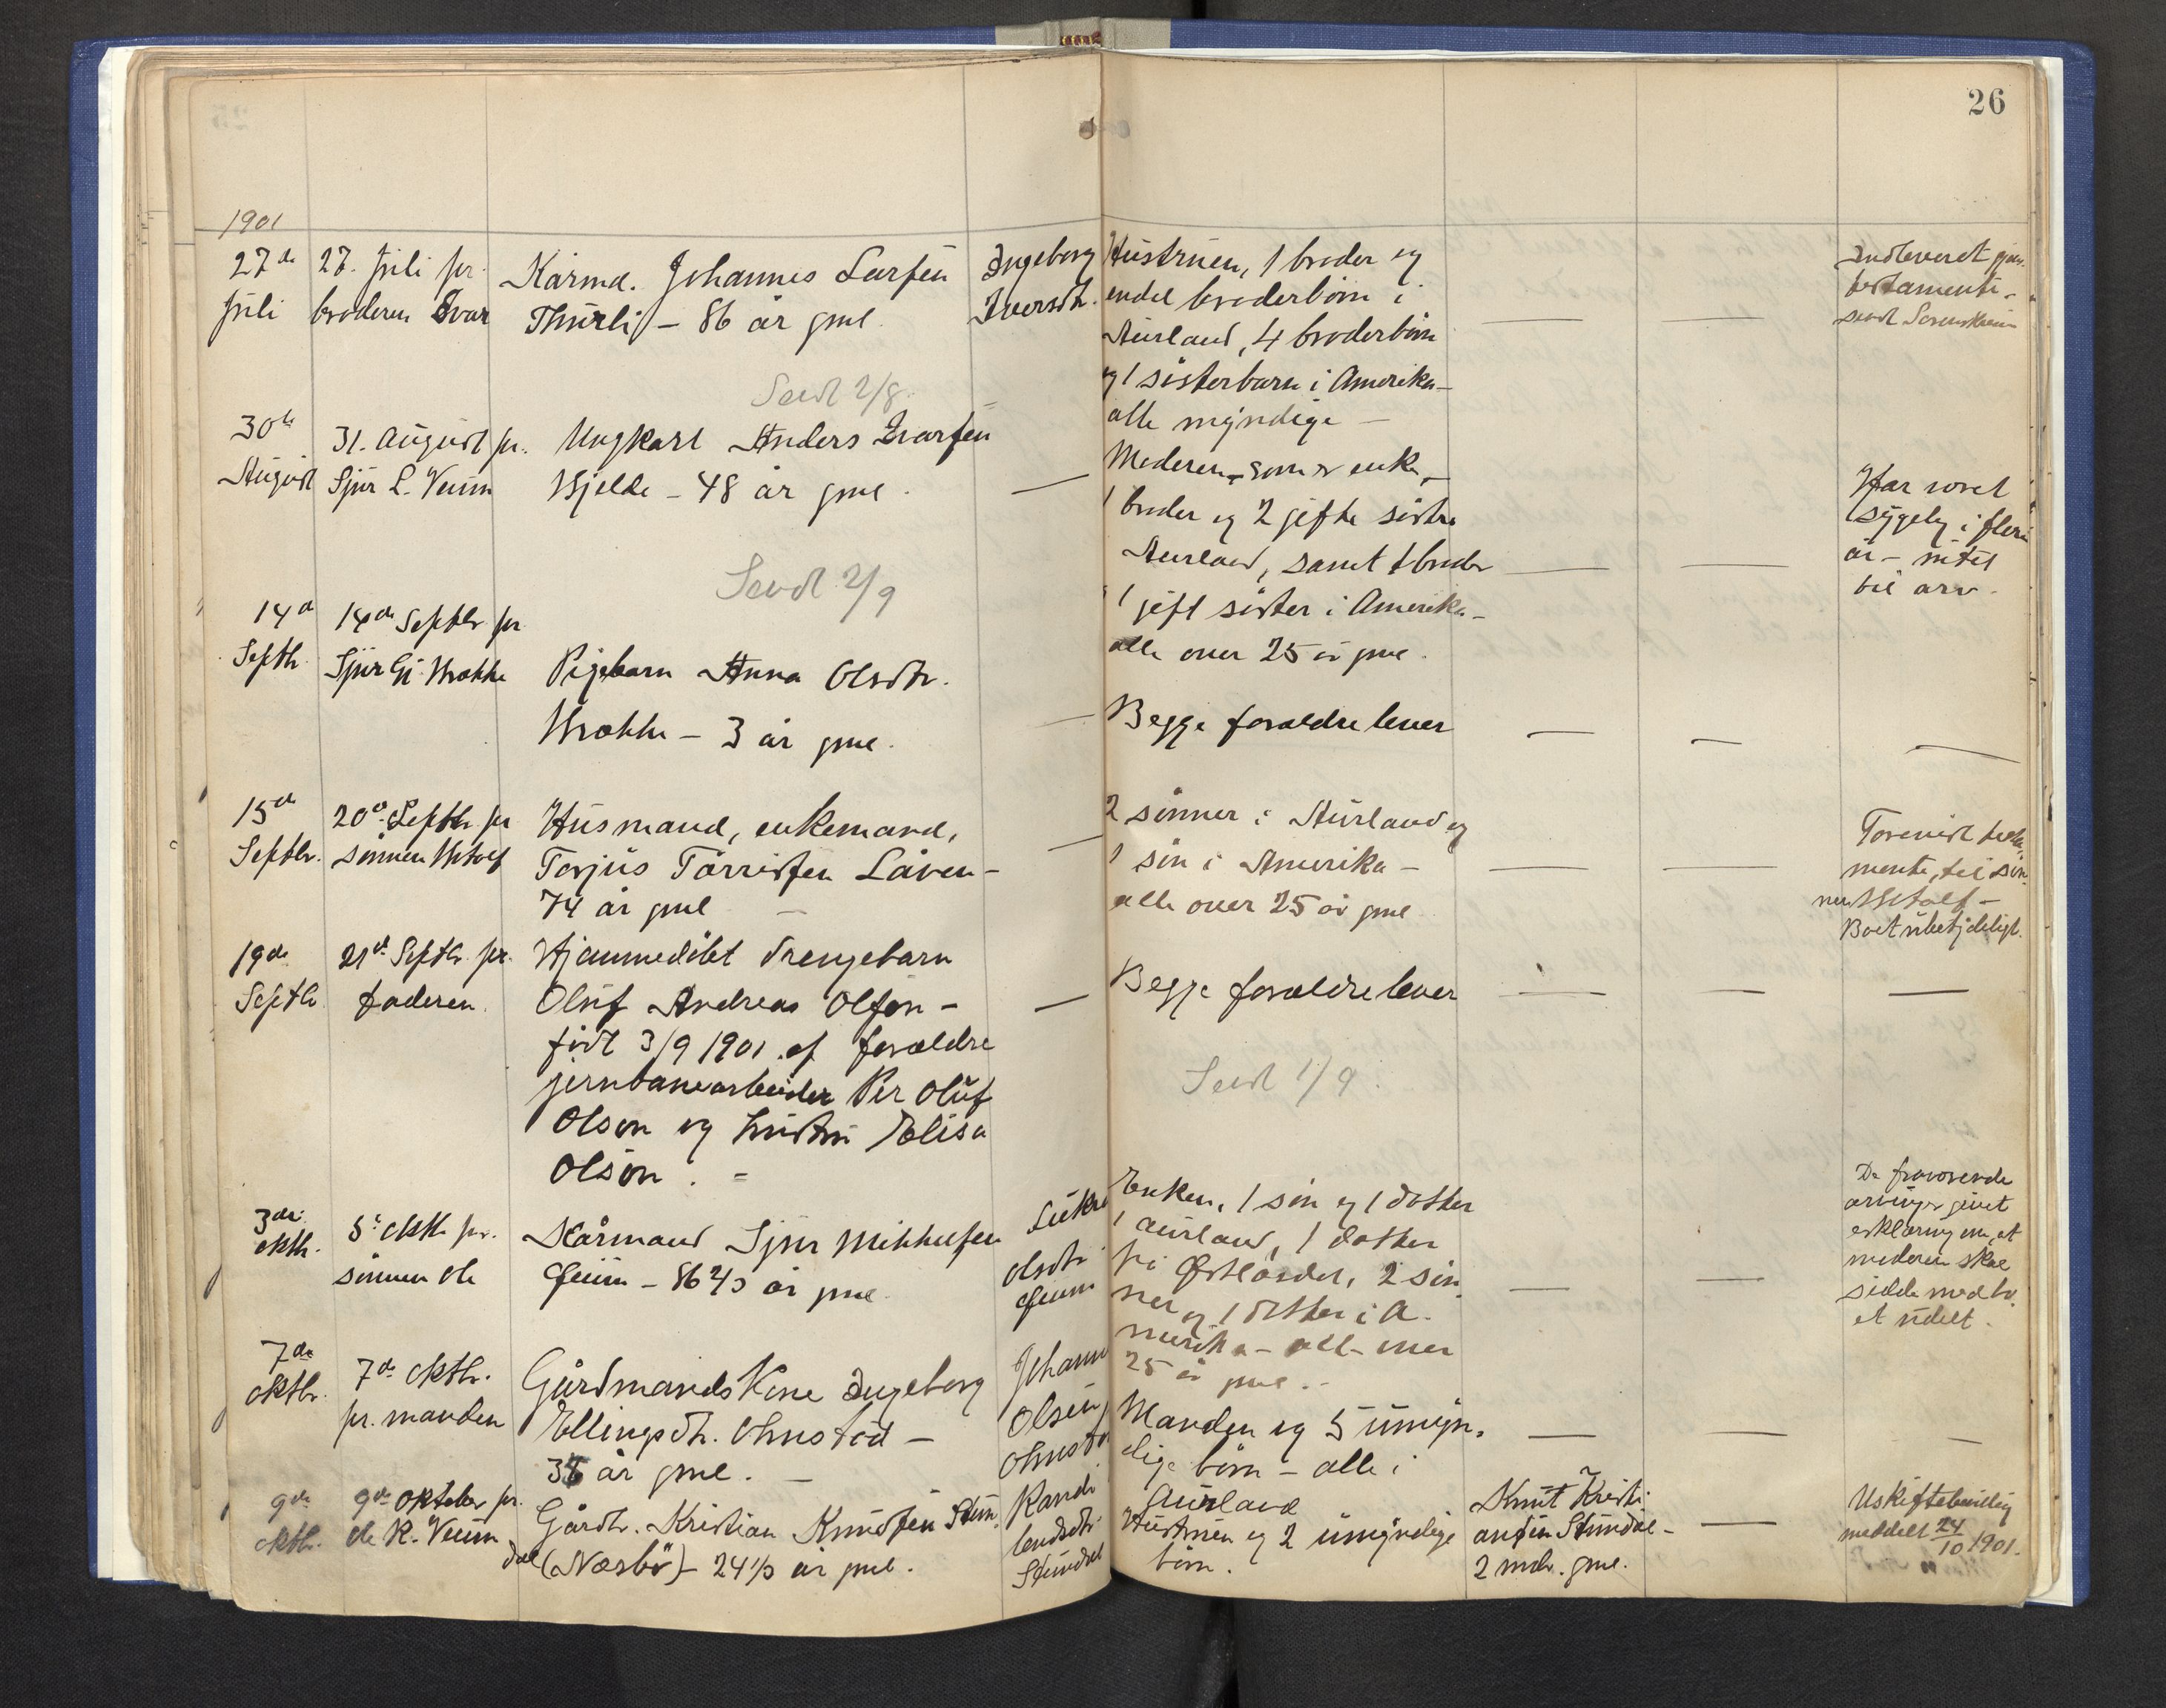 26
1901
27de
juli
27. juli pr.
broderen Ivar
Kårmd. Johannes Larsen
Thurli - 86 år gml.
Ingeborg
Iversdtr.
Hustruen, 1 broder og
endel broderbörn i
Aurland, 4 broderbörn
og 1 sösterbarn i Amerika -
alle myndige -
Indleveret
testamente -
sendt Sorenskriver
Sendt 2/8.
30te
August
31. August pr.
Sjur L. Veum
Ungkarl Anders Ivarsen
Hjelde - 48 år gml.
Moderen, som er enke, -
1 broder og 2 gifte söstre
Aurland, samt 1 broder
1 gift söster i Amerika -
alle over 25 år gml.
Har voret
sygelig i flere
år - intet
til arv.
Sendt 2/9
14de
Septb.
14de Septbr pr
Sjur Gj. Brekke
Pigebarn Anna Olsdtr.
Brekke - 3 år gml.
Begge foreldre lever
15de
Septbr.
20de Septbr pr
sönnen Botolf
Husmand, enkemand,
Torjus Törrissen Låven -
74 år gml -
2 sönner i Aurland og
1 sön i Amerika -
alle over 25 år gml
testa-
mente, til sön-
nen Botolf -
Boet ubetydeligt.
19de
Septbr
21de Septbr. pr.
faderen.
Hjemmedöbt drengebarn
Oluf Andreas Olson -
födt 3/9 1901 af foreldre
jernbanearbeider Per Oluf
Olson og hustru Elisa
Olson. -
Begge foreldre lever
Sendt 1/9.
3de
oktb.
5te oktb. pr.
sönnen Ole
Kårmand Sjur Mikkelsen
Frum - 86 2/3 år gml.
Sukra?
Olsdtr
Enken, 1 sön og 1 datter
i Aurland, 1 datter
på Östlandet, 2 sön-
ner og 1 datter i A-
merika - alle over
25 år gml. -
De fraværende
arvinger givet
erklæring om, at
moderen skal
sidde med bo-
et udelt.
7de
oktbr.
7de oktbr.
pr. manden
Gårdmandskone Ingeborg
Ellingsdtr. Ohnstad -
38 år gml. -
Johannes
Olsen
Ohnstad
Manden og 5 umyn-
dige börn - alle i
Aurland
9de
oktbr.
9de oktober pr.
Ole K. Veum
Gårdbr. Kristian Knudsen Stun-
dal (Næsbö) - 24 1/3 år gml.
Randi
Stundal
Hustruen og 2 umyndige
börn.
Knut Kristi-
ansen Stundal -
2 mdr. gml.
Uskiftebevilling
meddelt 24/10 1901.